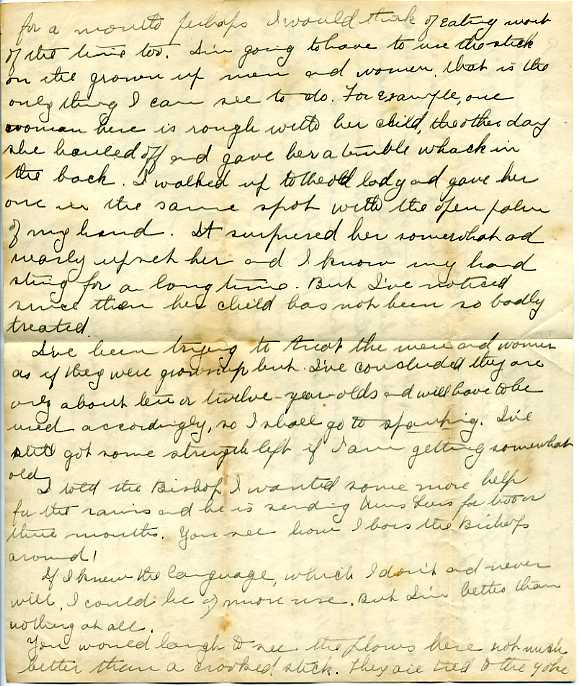 for a month perhaps I would think of eating most
of the time too. I'm going to have to use the stick
on the grown up men and women, that is the
only thing I can see to do. For example, one
woman here is rough with her child, the other day
she hauled off and gave her a terrible whack in
the back. I walked up to the old lady and gave her
one in the same spot with the open palm
of my hand. It surprised her somewhat ad
nearly upset her and I know my hand
stung for a long time. But I've noticed
since then her child has not been so badly
treated.
I've been trying to treat the men and women
as if they were grownup but I've concluded they are
only about ten or twelve-year-olds and will have to be
used accordingly, so I shall go to spanking. I've
still got some strength left if I am getting somewhat
old.
I told the Bishop I wanted some more help
for the rains and he is sending Miss for two or
three months. You see how I boss the Bishop
around!
If I knew the language, which I don't and never
will, I could be of more use. But I'm better than
nothing at all.
You would laugh to see the plows here not much
better than a crooked stick. They are tied to the yoke